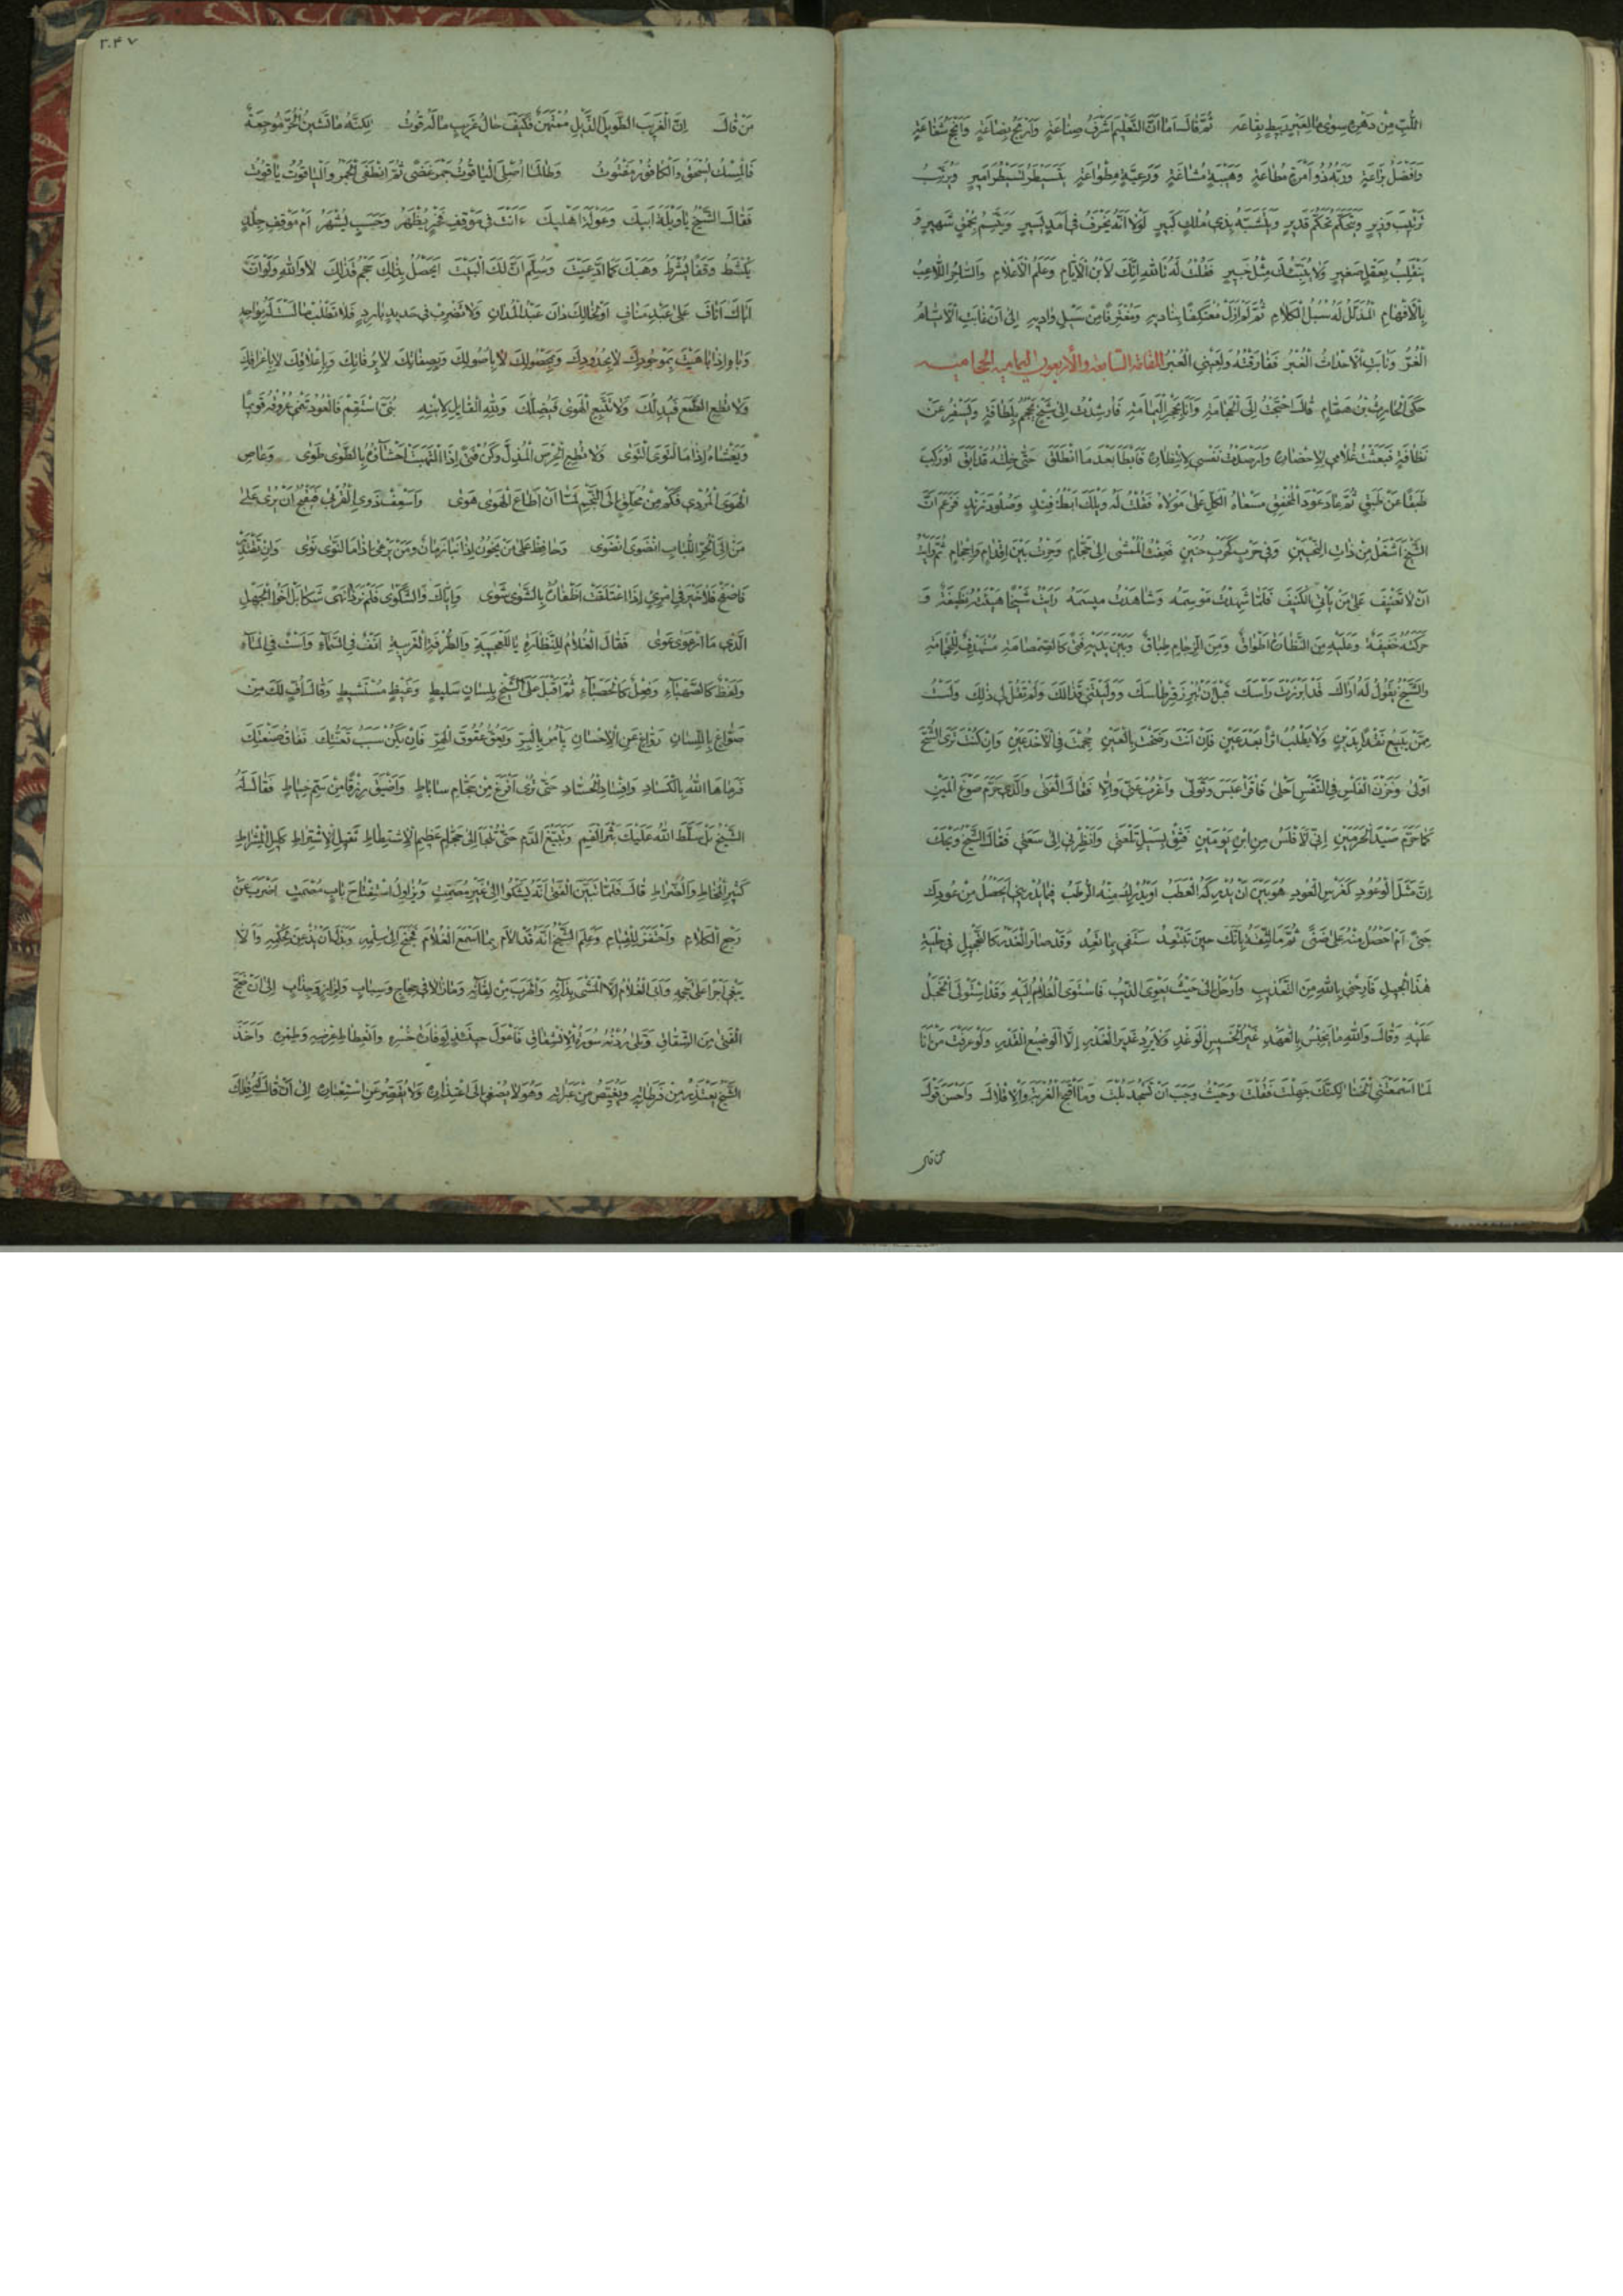 اللُّبِّ مِنْ دَهْرِهِ سِوٰى مٰا لِلْعَيْرِ رَبِيطِ بِقٰاعَهِ ثُمَّ قٰالَ اَمٰا اِنَّ التَّعْلِيمَ اَشْرَفُ صِنٰاعَةٍ وَاَرْبَحُ بِضٰاعَةٍ وَاَنْجَحُ شَفٰاعَةٍ
وَاَفْضَلُ بَرٰاعَةٍ وَرَبُّهُ ذُو اِمْرَةٍ مُطٰاعَةٍ وَهَيْبَةٍ مُشٰاعَةٍ وَرَعِيَّةٍ مِطْوٰاعَةٍ يَتَسَيْطَرُ تَسَيْطُرَ اَمِيرٍ وَيُرَتِّبُ
تَرْتِيبَ وَزِيرٍ وَيَتَحَكَّمُ تَحَكُّمَ قَدِيرٍ وَيَتَشَبَّهُ بِذِي مُلْكٍ كَبِيرٍ لَوْلٰا اَنَّهُ يَخْرَفُ فِي اَمَدٍ يَسِيرٍ وَيَتَّسِمُ بِحُمْقٍ شَهِيرٍ وَ
يَتَقَلَّبُ بِعَقْلٍ صَغِيرٍ وَلٰا يُنَبِّئُكَ مِثْلُ خَبِيرٍ فَقُلْتُ لَهُ تَاللّٰهِ اِنَّكَ لَاَبْنُ الْاَيّٰامِ وَعَلَمُ الْاَعْلٰامِ وَالسّٰاحِرُ اللّٰاعِبُ
بِالْاَفْهٰامِ الْمُذَلَّلُ لَهُ سُبُلُ الْكَلٰامِ ثُمَّ لَمْ اَزَلْ مُعْتَكِفًا بِنٰادِيهِ وَمُغْتَرِفًا مِنْ سَيْلِ وٰادِيهِ اِلٰى اَنْ غٰابَتِ الْاَيّٰامُ
الْغُرُّ وَنٰابَتِ الْاَحْدٰاثُ الْغُبْرُ فَفٰارَقْتُهُ وَلِعَيْنِي الْعُبْرُ المقامة السابعة والأربعون اليمامية الحجامية
حَكَى الْحٰارِثُ بْنُ هَمّٰامٍ قٰالَ احْتَجْتُ اِلَى الْحِجٰامَةِ وَاَنَا بِحَجْرِ الْيَمٰامَةِ فَاُرْشِدْتُ اِلٰى شَيْخٍ يَحْجُمُ بِلَطٰافَةٍ وَيَسْفِرُ عَنْ
نَظٰافَةٍ فَبَعَثْتُ غُلٰامِي لِاِحْضٰارِهِ وَاَرْصَدْتُ نَفْسِي لِاِنْتِظٰارِهِ فَاَبْطَاَ بَعْدَ مَا انْطَلَقَ حَتّٰى خِلْتُهُ قَدْ اَبَقَ اَوْ رَكِبَ
طَبَقًا عَنْ طَبَقٍ ثُمَّ عٰادَ عَوْدَ الْمُخْفِقِ مَسْعٰاهُ الْكَلِّ عَلٰى مَوْلٰاهُ فَقُلْتُ لَهُ وَيْلَكَ اَبُطْءُ فِنْدٍ وَصُلُودُ زَنْدٍ فَزَعَمَ اَنَّ
الشَّيْخَ اَشْغَلُ مِنْ ذٰاتِ النِّحْيَيْنِ وَفِي حَرْبٍ كَحَرْبِ حُنَيْنٍ فَعِفْتُ الْمَمْشٰى اِلٰى حَجّٰامٍ وَحِرْتُ بَيْنَ اِقْدٰامٍ وَاِحْجٰامٍ ثُمَّ رَاَيْتُ
اَنْ لٰا تَعْنِيفَ عَلٰى مَنْ يَاْتِي الْكَنِيفَ فَلَمّٰا شَهِدْتُ مَوْسِمَهُ وَشٰاهَدْتُ مِيسَمَهُ رَاَيْتُ شَيْخًا هَيْئَتُهُ نَظِيفَةٌ وَ
حَرَكَتُهُ خَفِيفَةٌ وَعَلَيْهِ مِنَ النَّظّٰارَةِ اَطْوٰاقٌ وَمِنَ الزِّحٰامِ طِبٰاقٌ وَبَيْنَ يَدَيْهِ فَتًى كَالصَّمْصٰامَةِ مُسْتَهْدِفٌ لِلْحِجٰامَةِ
وَالشَّيْخُ يَقُولُ لَهُ اَرٰاكَ قَدْ اَبْرَزْتَ رَاْسَكَ قَبْلَ اَنْ تُبْرِزَ قِرْطٰاسَكَ وَوَلَّيْتَنِي قَذٰالَكَ وَلَمْ تَقُلْ لِي ذٰا لَكَ وَلَسْتُ
مِمَّنْ يَبِيعُ نَقْدًا بِدَيْنٍ وَلٰا يَطْلُبُ اَثَرًا بَعْدَ عَيْنٍ فَاِنْ اَنْتَ رَضَخْتَ بِالْعَيْنِ حُجِمْتَ فِي الْاَخْدَعَيْنِ وَاِنْ كُنْتَ تَرَى الشُّحَّ
اَوْلٰى وَخَزْنَ الْفَلْسِ فِي النَّفْسِ اَحْلٰى فَاقْرَاْ عَبَسَ وَتَوَلّٰى وَاغْرُبْ عَنِّي وَاِلّٰا فَقٰالَ الْفَتٰى وَالَّذِي حَرَّمَ صَوْغَ الْمَيْنِ
كَمٰا حَرَّمَ صَيْدَ الْحَرَمَيْنِ اِنِّي لَاَفْلَسُ مِنِ ابْنِ يَوْمَيْنِ فَثِقْ بِسَيْلِ تَلْعَتِي وَاَنْظِرْنِي اِلٰى سَعَتِي فَقٰالَ الشَّيْخُ وَيْحَكَ
اِنَّ مَثَلَ الْوُعُودِ كَغَرْسِ الْعُودِ هُوَ بَيْنَ اَنْ يُدْرِكَهُ الْعَطَبُ اَوْ يُدْرَكَ مِنْهُ الرُّطَبُ فَمٰا يُدْرِينِي اَيَحْصُلُ مِنْ عُودِكَ
جَنًى اَمْ اَحْصُلُ مِنْهُ عَلٰى ضَنًى ثُمَّ مَا الثِّقَةُ بِاَنَّكَ حِينَ تَبْتَعِدُ سَتَفِي بِمٰا تَعِدُ وَقَدْ صٰارَ الْغَدْرُ كَالتَّحْجِيلِ فِي حِلْيَةِ
هٰذَا الْجِيلِ فَاَرِحْنِي بِاللّٰهِ مِنَ التَّعْذِيبِ وَارْحَلْ اِلٰى حَيْثُ يَعْوِي الذِّيبُ فَاسْتَوَى الْغُلٰامُ اِلَيْهِ وَقَدِ اسْتَوْلَى الْخَجَلُ
عَلَيْهِ وَقٰالَ وَاللّٰهِ مٰا يَخِيسُ بِالْعَهْدِ غَيْرُ الْخَسِيسِ الْوَغْدِ وَلٰا يَرِدُ غَدِيرَ الْغَدْرِ اِلَّا الْوَضِيعُ الْقَدْرِ وَلَوْ عَرَفْتَ مَنْ اَنَا
لَمٰا اَسْمَعْتَنِي الْخَنٰا لٰكِنَّكَ جَهِلْتَ فَقُلْتَ وَحَيْثُ وَجَبَ اَنْ تَسْجُدَ بُلْتَ وَمٰا اَقْبَحَ الْغُرْبَةَ وَالْاِقْلٰالَ وَاَحْسَنَ قَوْلَ
من قال
٢٠٤٧
مَنْ قٰالَ اِنَّ الْغَرِيبَ الطَّوِيلَ الذَّيْلِ مُمْتَهَنٌ فَكَيْفَ حٰالُ غَرِيبٍ مٰا لَهُ قُوتُ لٰكِنَّهُ مٰا تَشِينُ الْحُرَّ مُوجِعَةٌ
فَالْمِسْكُ يُسْحَقُ وَالْكٰافُورُ مَفْتُوتُ وَطٰالَمٰا اُصْلِيَ الْيٰاقُوتُ جَمْرَ غَضًى ثُمَّ انْطَفَى الْجَمْرُ وَالْيٰاقُوتُ يٰاقُوتُ
فَقٰالَ الشَّيْخُ يٰا وَيْلَةَ اَبِيكَ وَعَوْلَةَ اَهْلِيكَ ءَاَنْتَ فِي مَوْقِفِ فَخْرٍ يُظْهَرُ وَحَسَبٍ يُشْهَرُ اَمْ مَوْقِفِ جِلْدٍ
يُكْشَطُ وَقَفًا يُشْرَطُ وَهَبْكَ كَمَا ادَّعَيْتَ وَسُلِّمَ اَنَّ لَكَ الْبَيْتَ اَيَحْصُلُ بِذٰلِكَ حَجْمُ قَذٰالِكَ لٰا وَاللّٰهِ وَلَوْ اَنَّ
اَبٰاكَ اَنٰافَ عَلٰى عَبْدِ مَنٰافٍ اَوْ لِخٰالِكَ دٰانَ عَبْدُ الْمَدٰانِ وَلٰا تَضْرِبْ فِي حَدِيدٍ بٰارِدٍ فَلٰا تَطْلُبْ مٰا لَسْتَ لَهُ بِوٰاجِدٍ
وَبٰاهِ اِذٰا بٰاهَيْتَ بِمَوْجُودِكَ لٰا بِجُدُودِكَ وَبِمَحْصُولِكَ لٰا بِاُصُولِكَ وَبِصِفٰاتِكَ لٰا بِرُفٰاتِكَ وَبِاَعْلٰاقِكَ لٰا بِاَعْرٰاقِكَ
وَلٰا تُطِعِ الطَّمَعَ فَيُذِلَّكَ وَلٰا تَتَّبِعِ الْهَوٰى فَيُضِلَّكَ وَلِلّٰهِ الْقٰايِلُ لِابْنِهِ بُنَيَّ اسْتَقِمْ فَالْعُودُ تَنْمِي عُرُوقُهُ قَوِيمًا
وَيَغْشٰاهُ اِذٰا مَا الْتَوَى التَّوٰى وَلٰا تُطِعِ الْحِرْصَ الْمُذِلَّ وَكُنْ فَتًى اِذَا الْتَهَبَتْ اَحْشٰاؤُهُ بِالطَّوٰى طَوٰى وَعٰاصِ
الْهَوَى الْمُرْدِي فَكَمْ مِنْ مُحَلِّقٍ اِلَى النَّجْمِ لَمّٰا اَنْ اَطٰاعَ الْهَوٰى هَوٰى وَاَسْعِفْ ذَوِي الْقُرْبٰى فَيَقْبُحُ اَنْ يُرٰى عَلٰى
مَنْ اِلَى الْحُرِّ اللُّبٰابِ انْضَوَى انْضَوٰى وَحٰافِظْ عَلٰى مَنْ لٰا يَخُونُ اِذٰا نَبٰا زَمٰانٌ وَمَنْ يَرْعٰى اِذٰا مَا النَّوٰى نَوٰى وَاِنْ تَقْتَدِرْ
فَاصْفَحْ فَلٰا خَيْرَ فِي امْرِئٍ اِذَا اعْتَلَقَتْ اَظْفٰارُهُ بِالشَّوٰى شَوٰى وَاِيّٰاكَ وَالشَّكْوٰى فَلَمْ تَرَ ذٰا نُهًى شَكٰا بَلْ اَخُو الْجَهْلِ
الَّذِي مَا ارْعَوٰى عَوٰى فَقٰالَ الْغُلٰامُ لِلنَّظّٰارَةِ يٰا لَلْعَجِيبَةِ وَالطُّرْفَةِ الْغَرِيبَةِ اَنْفٌ فِي السَّمٰآءِ وَاسْتٌ فِي الْمٰآءِ
وَلَفْظٌ كَالصَّهْبٰآءِ وَفِعْلٌ كَالْحَصْبٰآءِ ثُمَّ اَقْبَلَ عَلَى الشَّيْخِ بِلِسٰانٍ سَلِيطٍ وَغَيْظٍ مُسْتَشِيطٍ وَقٰالَ اُفٍّ لَكَ مِنْ
صَوّٰاغٍ بِاللِّسٰانِ رَوّٰاغٍ عَنِ الْاِحْسٰانِ يَاْمُرُ بِالْبِرِّ وَيَعُقُّ عُقُوقَ الْهِرِّ فَاِنْ يَكُنْ سَبَبُ تَعَنُّتِكَ نَفٰاقَ صَنْعَتِكَ
فَرَمٰاهَا اللّٰهُ بِالْكَسٰادِ وَاِفْسٰادِ الْحُسّٰادِ حَتّٰى تُرٰى اَفْرَغَ مِنْ حَجّٰامِ سٰابٰاطٍ وَاَضْيَقَ رِزْقًا مِنْ سَمِّ خِيٰاطٍ فَقٰالَ لَهُ
الشَّيْخُ بَلْ سَلَّطَ اللّٰهُ عَلَيْكَ بَثْرَ الْفَمِ وَتَبَيُّغَ الدَّمِ حَتّٰى تُلْجَاَ اِلٰى حَجّٰامٍ عَظِيمِ الْاِشْتِطٰاطِ ثَقِيلِ الْاِشْتِرٰاطِ كَلِيلِ الْمِشْرٰاطِ
كَثِيرِ الْمُخٰاطِ وَالضُّرٰاطِ قٰالَ فَلَمّٰا تَبَيَّنَ الْفَتٰى اَنَّهُ يَشْكُوا اِلٰى غَيْرِ مُصْمِتٍ وَيُزٰاوِلُ اسْتِفْتٰاحَ بٰابٍ مُصْمَتٍ اَضْرَبَ عَنْ
رَجْعِ الْكَلٰامِ وَاحْتَفَزَ لِلْقِيٰامِ وَعَلِمَ الشَّيْخُ اَنَّهُ قَدْ اَلٰامَ بِمٰا اَسْمَعَ الْغُلٰامَ فَجَنَحَ اِلٰى سِلْمِهِ وَبَذَلَ اَنْ يُذْعِنَ لِحُكْمِهِ وَاَلّٰا
يَبْغِيَ اَجْرًا عَلٰى حَجْمِهِ وَاَبَى الْغُلٰامُ اِلَّا الْمَشْيَ بِدٰآئِهِ وَالْهَرَبَ مِنْ لِقٰآئِهِ وَمٰا زٰالٰا فِي حِجٰاجٍ وَسِبٰابٍ وَلِزٰازٍ وَجِذٰابٍ اِلٰى اَنْ ضَجَّ
الْفَتٰى مِنَ الشِّقٰاقِ وَتَلٰى رُدْنُهُ سُورَةَ الْاِنْشِقٰاقِ فَاَعْوَلَ حِينَئِذٍ لِوُفُورِ خُسْرِهِ وَانْعِطٰاطِ عِرْضِهِ وَطِمْرِهِ وَاَخَذَ
الشَّيْخُ يَعْتَذِرُ مِنْ فَرَطٰاتِهِ وَيُغَيِّضُ مِنْ عَبَرٰاتِهِ وَهُوَ لٰا يُصْغِي اِلَى اعْتِذٰارِهِ وَلٰا يُقَصِّرُ عَنِ اسْتِعْبٰارِهِ اِلٰى اَنْ قٰالَ لَهُ فَدٰاكَ